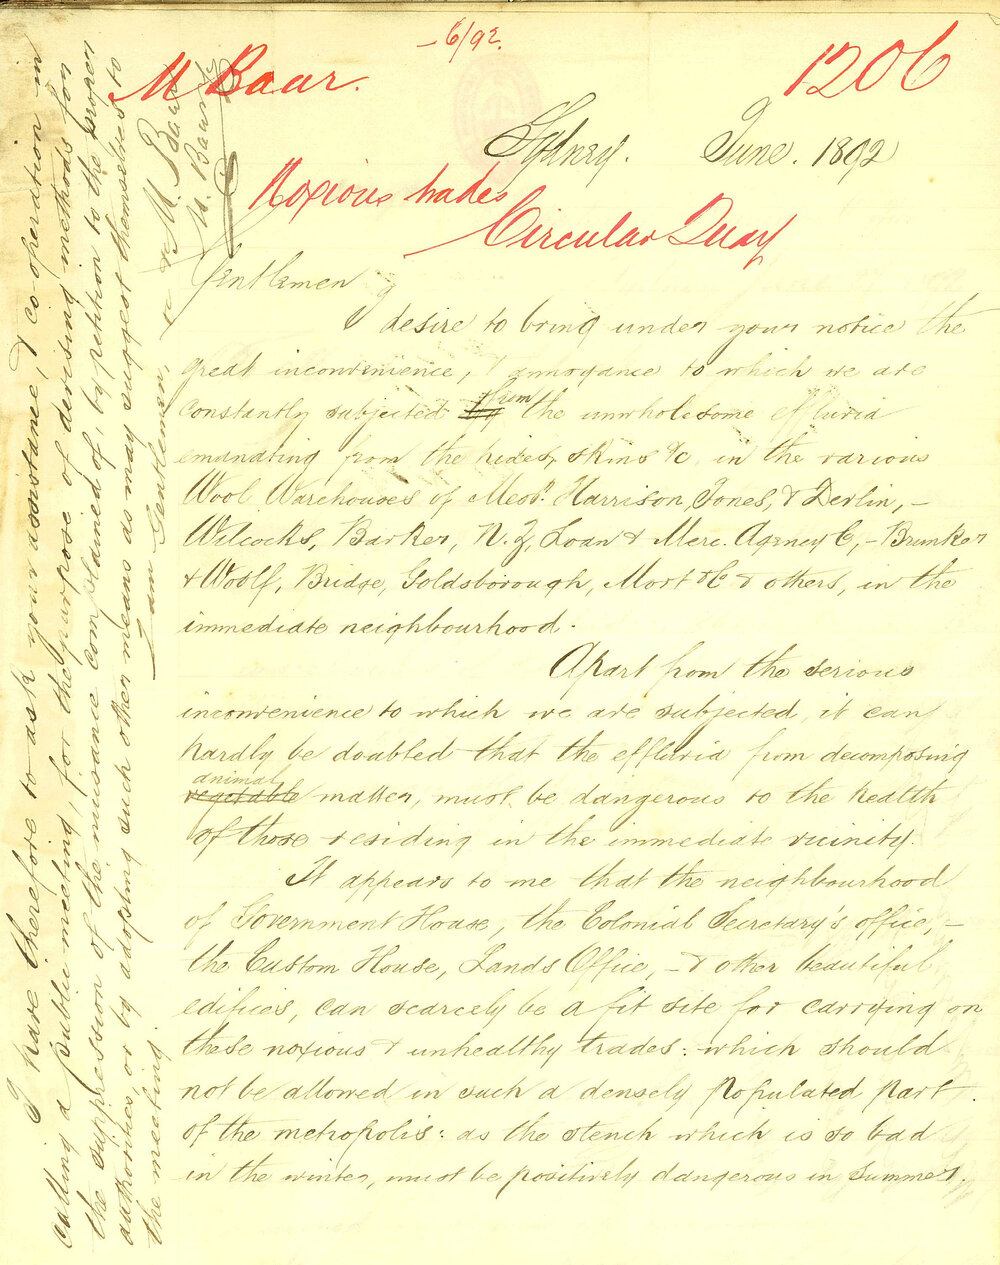 -6/92.
M Baur.
1206
Sydney. June. 1892
Noxious trades
Circular Quay
Gentlemen
I desire to bring under your notice the
great inconvenience, & annoyance to which we are
constantly subjected from the unwholesome effluvia
emanating from the hides, skins &c, in the various
Wool Warehouses of Messrs. Harrison, Jones, & Devlin, -
Wilcocks, Barker, N. Z, Loan & Merc. Agency C, - Brunker
& Woolf, Bridge, Goldsborough, Mort & C & others, in the
immediate neighbourhood.
Apart from the serious
inconvenience to which we are subjected, it can
hardly be doubted that the effluvia from decomposing
animal
vegetable matter, must be dangerous to the health
of those residing in the immediate vicinity.
It appears to me that the neighbourhood
of Government House, the Colonial Secretary's office, -
the Custom House, Lands Office, - & other beautiful
edifices, can scarcely be a fit site for carrying on
these noxious & unhealthy trades: which should
not be allowed in such a densely populated part
of the metropolis: as the stench which is so bad
in the winter, must be positively dangerous in Summer.
I have therefore to ask your assistance, & co-operation in
calling a public meeting, for the purpose of devising methods for
the suppression of the nuisance complained of, by petition to the proper
authorities, or by adopting such other means as may suggest themselves to
the meeting.
I am Gentlemen,
M. Baur
M. Baur